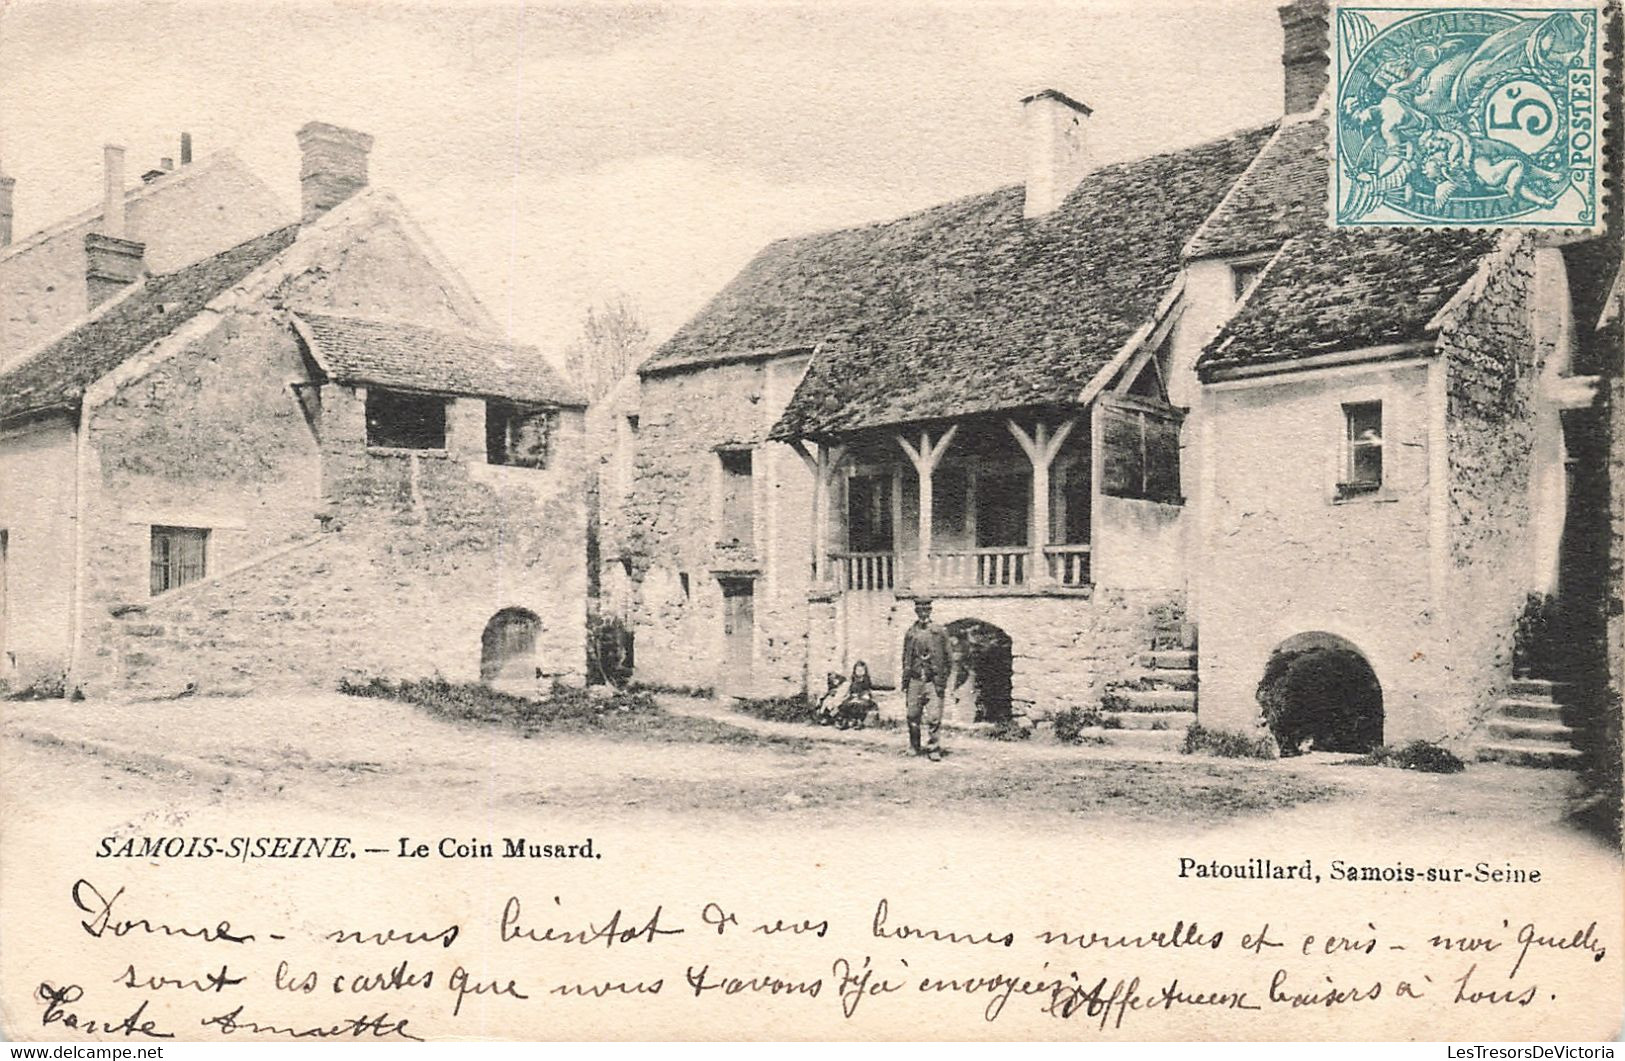 RÉPUBLIQUE FRANÇAISE
5c
POSTES
SAMOIS-S/SEINE. — Le Coin Musard.
Patouillard, Samois-sur-Seine
Donne - nous bientot d vos bonnes nouvelles et ecris - moi quelles
sont les cartes que nous t avons déjà envoyées Affectueux baisers à tous.
Tante
LesTresorsDeVictoria